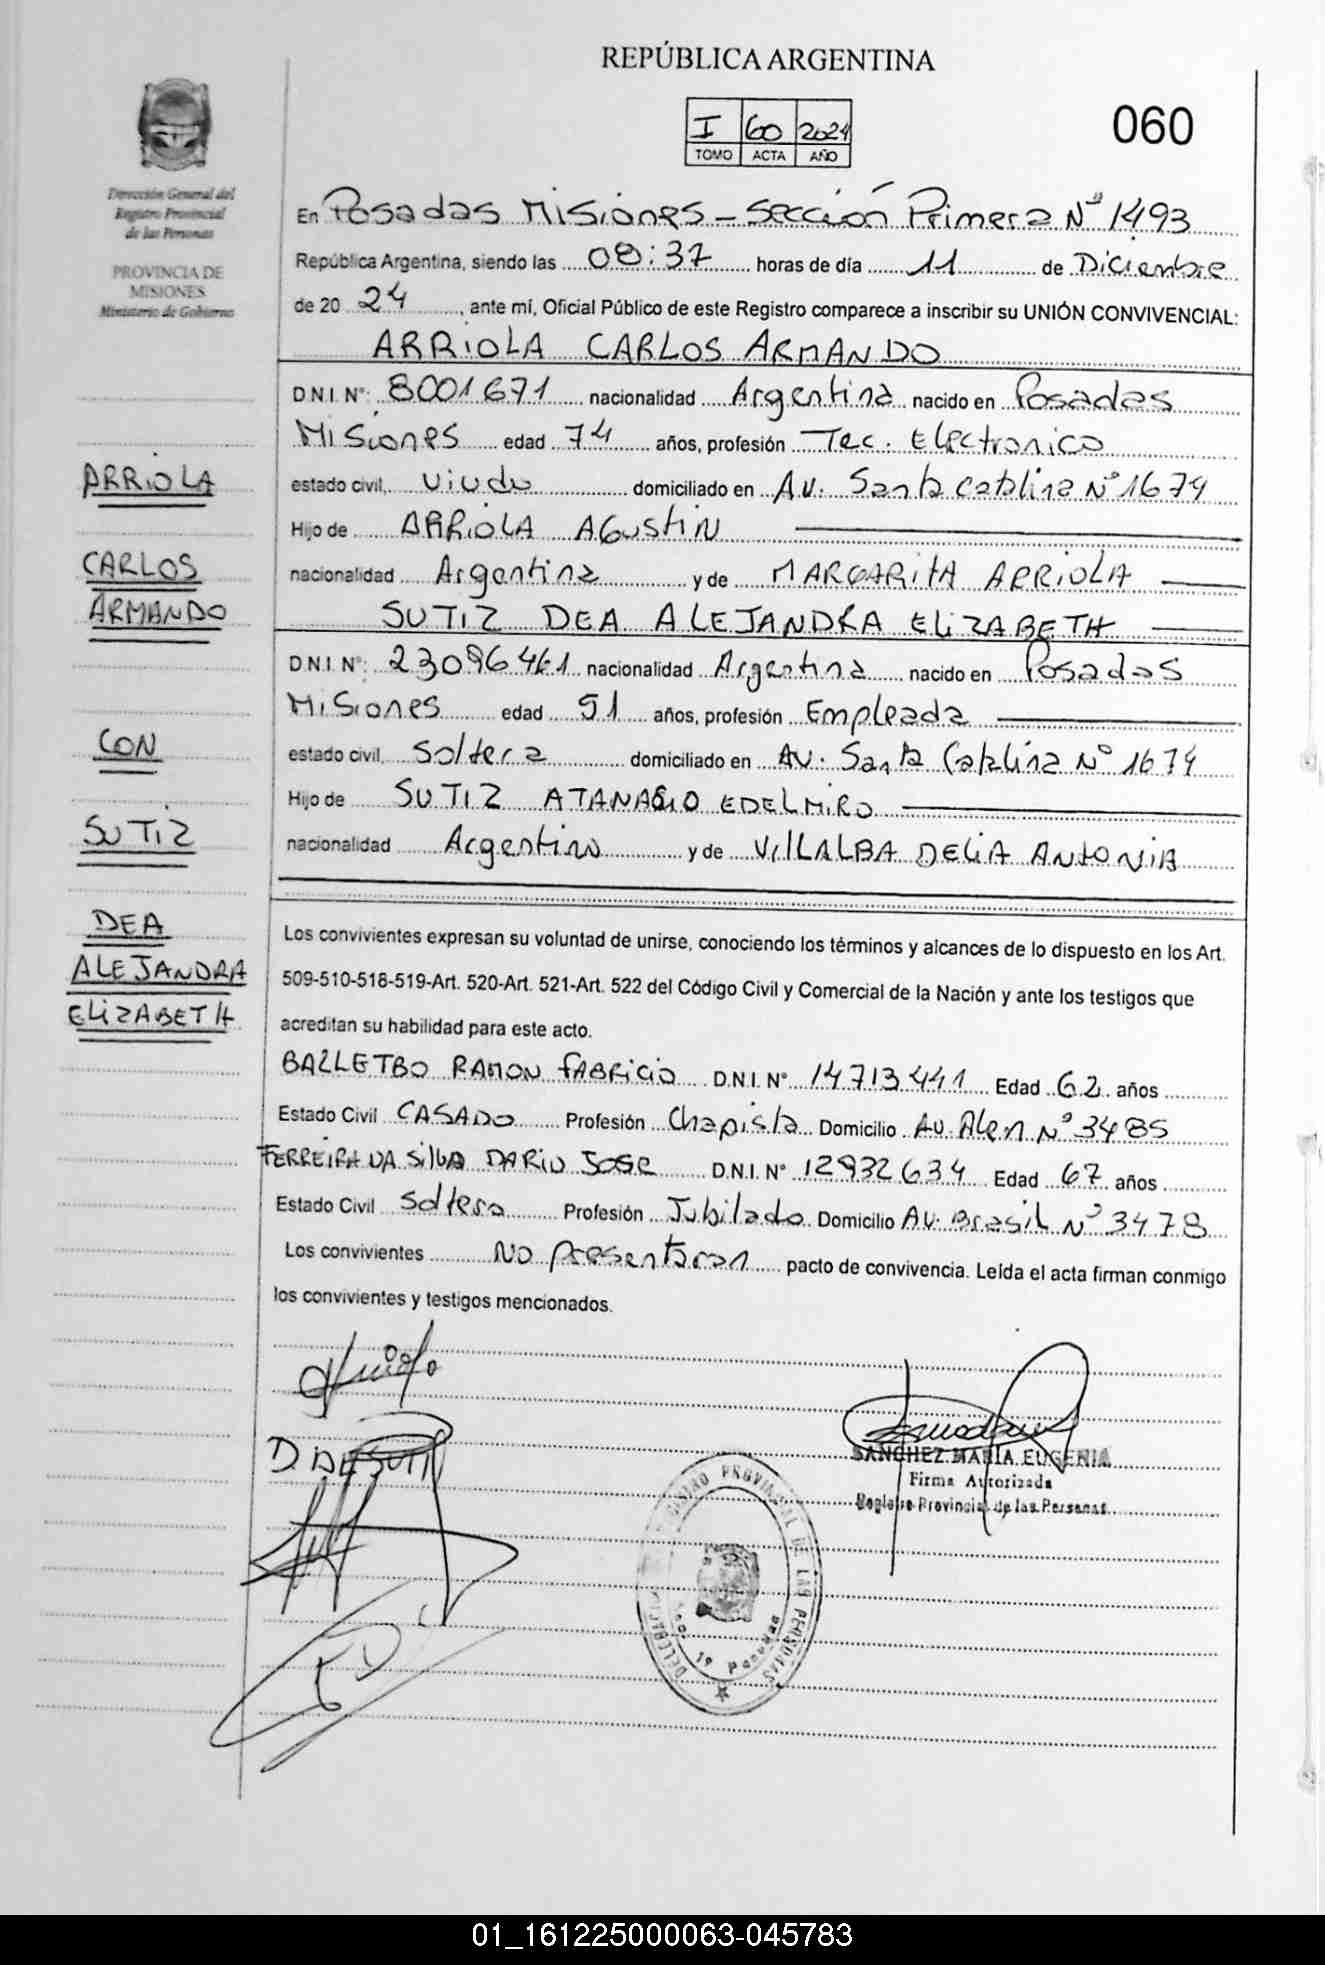 REPÚBLICA ARGENTINA
I 60 2024
TOMO ACTA AÑO
060
Dirección General del
Registro Provincial
de las Personas
PROVINCIA DE
MISIONES
Ministerio de Gobierno
En Posadas Misiones - Sección Primera Nº 1493
República Argentina, siendo las 08:37 horas de día 11 de Diciembre
de 20 24, ante mí, Oficial Público de este Registro comparece a inscribir su UNIÓN CONVIVENCIAL:
ARRIOLA CARLOS ARMANDO
D.N.I. Nº: 8001671 nacionalidad Argentina nacido en Posadas
Misiones edad 74 años, profesión Tec. Electronico
estado civil, Viudo domiciliado en Av. Santa Catalina Nº 1679
Hijo de ARRIOLA AGUSTIN
nacionalidad Argentina y de MARGARITA ARRIOLA
SUTIZ DEA ALEJANDRA ELIZABETH
D.N.I. Nº: 23096461 nacionalidad Argentina nacido en Posadas
Misiones edad 51 años, profesión Empleada
estado civil, Soltera domiciliado en Av. Santa Catalina Nº 1674
Hijo de SUTIZ ATANASIO EDELMIRO
nacionalidad Argentino y de VILLALBA DELIA ANTONIA
ARRIOLA
CARLOS
ARMANDO
CON
SUTIZ
DEA
ALEJANDRA
ELIZABETH
Los convivientes expresan su voluntad de unirse, conociendo los términos y alcances de lo dispuesto en los Art.
509-510-518-519-Art. 520-Art. 521-Art. 522 del Código Civil y Comercial de la Nación y ante los testigos que
acreditan su habilidad para este acto.
BALLETBO RAMON FABRICIO D.N.I. Nº 14713441 Edad 62 años
Estado Civil CASADO Profesión Chapista Domicilio Av. Alen Nº 3485
FERREIRA DA SILVA DARIO JOSE D.N.I. Nº 12932634 Edad 67 años
Estado Civil Soltero Profesión Jubilado Domicilio Av. Brasil Nº 3478
Los convivientes No presentaron pacto de convivencia. Leída el acta firman conmigo
los convivientes y testigos mencionados.
SANCHEZ MARÍA EUGENIA
Firma Autorizada
Registro Provincial de las Personas
REGISTRO PROVINCIAL DE LAS PERSONAS
DELEGACION
Secc. 1ª Posadas
01_161225000063-045783